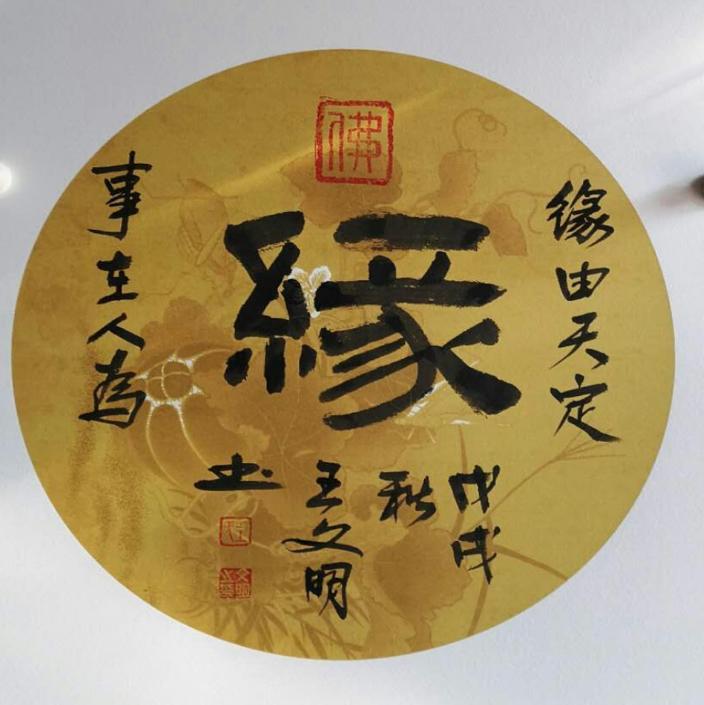 佛
緣
缘由天定
事在人為
戊戌
秋
王文明
书